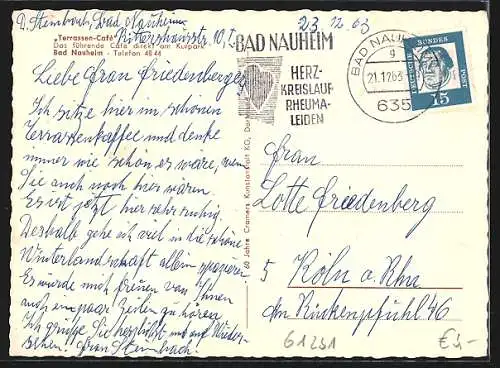 D. Stembach, Bad Nauheim
Rittershausstr. 10, I.
23 12 63
„Terrassen-Café“
Das führende Café direkt am Kurpark
Bad Nauheim - Telefon 48 44
Liebe Frau Friedenberger
Ich sitze hier im schönen
Terrassenkaffee und denke
immer wie schön es wäre, wenn
Sie auch noch hier wären
Es ist jetzt hier sehr ruhig.
Deshalb gehe ich viel in die schöne
Winterlandschaft allein spazieren
Es würde mich freuen von Ihnen
noch ein paar Zeilen zu hören
Ich grüße Sie herzlichst und auf Wieder-
sehen. Frau Stembach.
60 Jahre Cramers Kunstanstalt KG, Dortmund
BAD NAUHEIM
HERZ-
KREISLAUF
RHEUMA-
LEIDEN
BAD NAUHEIM
g
21.12.63
635
DEUTSCHE
BUNDES
POST
15
Frau
Lotte Friedenberg
5 Köln a. Rhn
Am Rinkenpfuhl 46
61291
€3,-